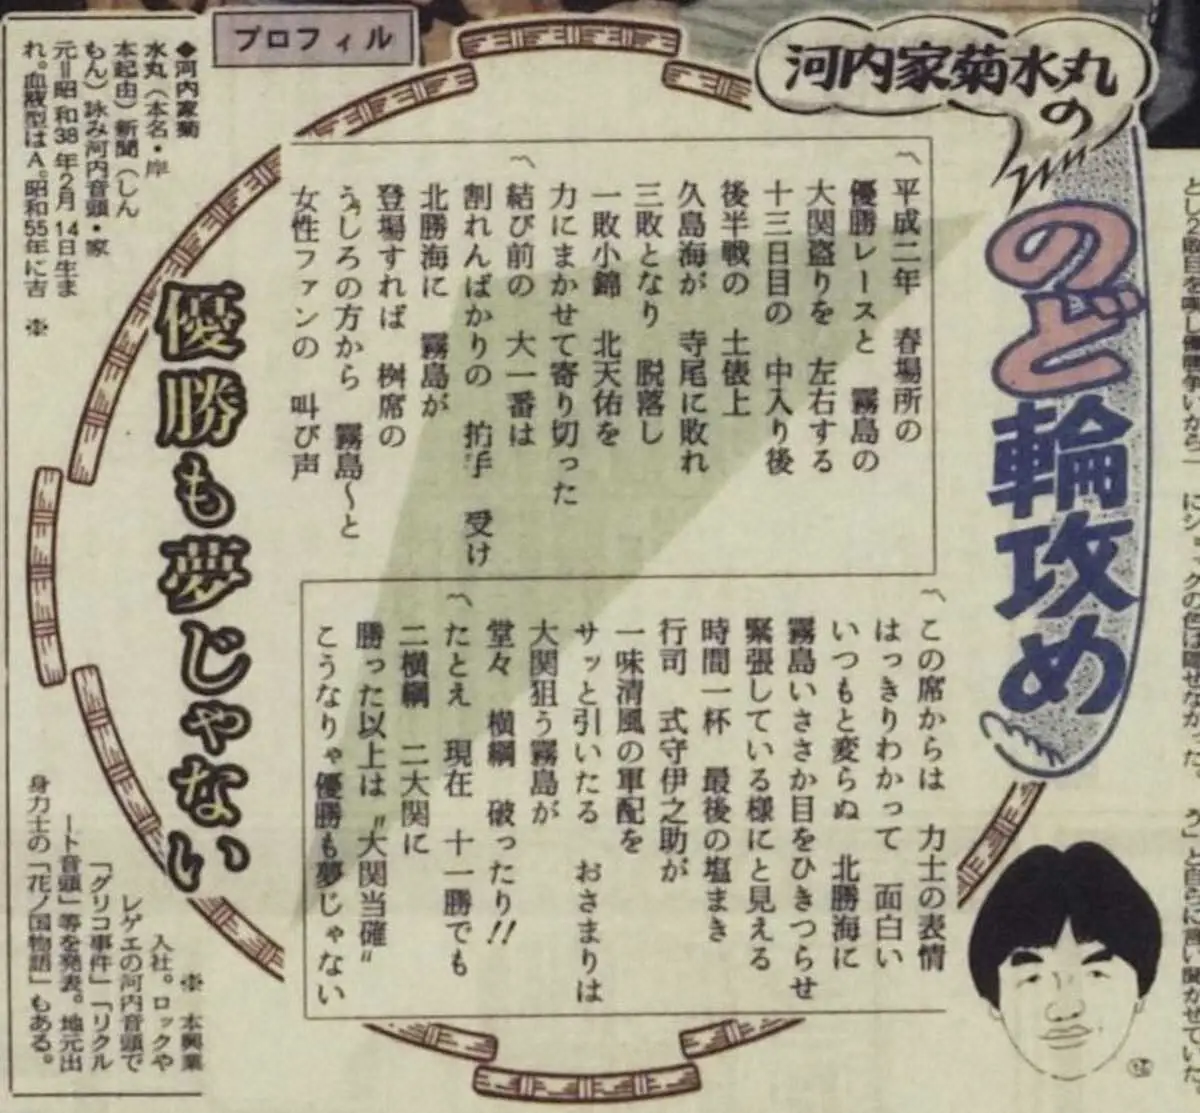 河内家菊水丸の
のど輪攻め
〽平成二年 春場所の
優勝レースと 霧島の
大関盗りを 左右する
十三日目の 中入り後
後半戦の 土俵上
久島海が 寺尾に敗れ
三敗となり 脱落し
一敗小錦 北天佑を
力にまかせて寄り切った
〽結び前の 大一番は
割れんばかりの 拍手 受け
北勝海に 霧島が
登場すれば 桝席の
うしろの方から 霧島〜と
女性ファンの 叫び声
〽この席からは 力士の表情
はっきりわかって 面白い
いつもと変らぬ 北勝海に
霧島いささか目をひきつらせ
緊張している様にと見える
時間一杯 最後の塩まき
行司 式守伊之助が
一味清風の軍配を
サッと引いたる おさまりは
大関狙う霧島が
堂々 横綱 破ったり!!
〽たとえ 現在 十一勝でも
二横綱 二大関に
勝った以上は〝大関当確〟
こうなりゃ優勝も夢じゃない
優勝も夢じゃない
プロフィル
◆河内家菊
水丸(本名・岸
本起由)新聞(しん
もん)詠み河内音頭・家
元=昭和38年2月14日生ま
れ。血液型はA。昭和55年に吉
※
※ 本興業
入社。ロックや
レゲエの河内音頭で
「グリコ事件」「リクル
ート音頭」等を発表。地元出
身力士の「花ノ国物語」もある。